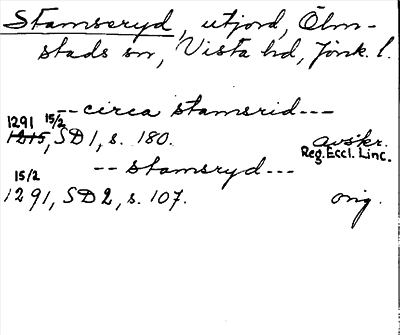 Stamseryd, utjord, Ölm-
stads sn, Vista hd, Jönk. l.
--circa stamsrid---
1291 15/2
1215, SD1, s. 180. avskr.
Reg. Eccl. Linc.
-- stamsryd---
15/2
1291, SD2, s. 107. orig.